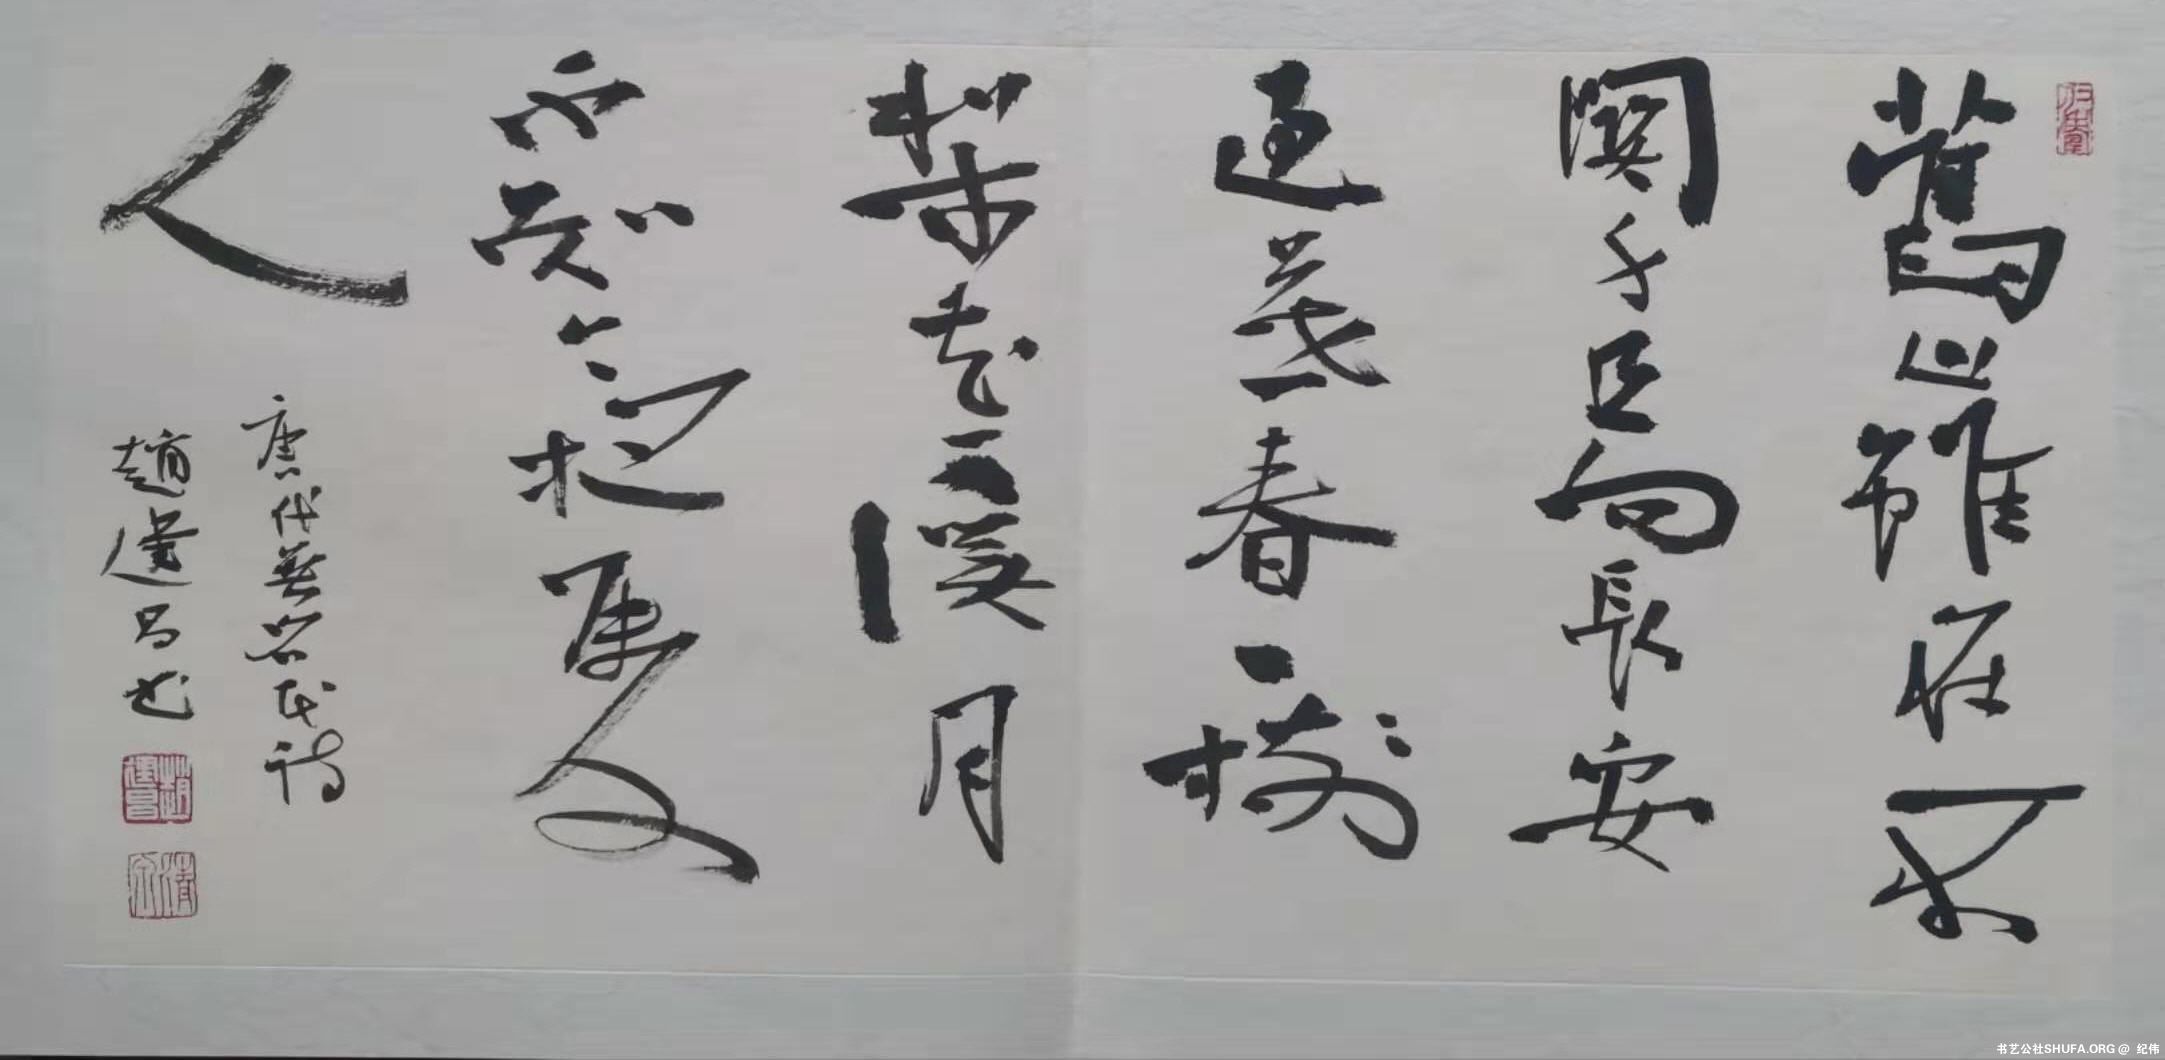 舊山雖在不
關身且向長安
過暮春一樹
梨花一溪月
不知今
人
唐代無名氏詩
趙 昌书
书艺公社SHUFA.ORG @ 纪伟